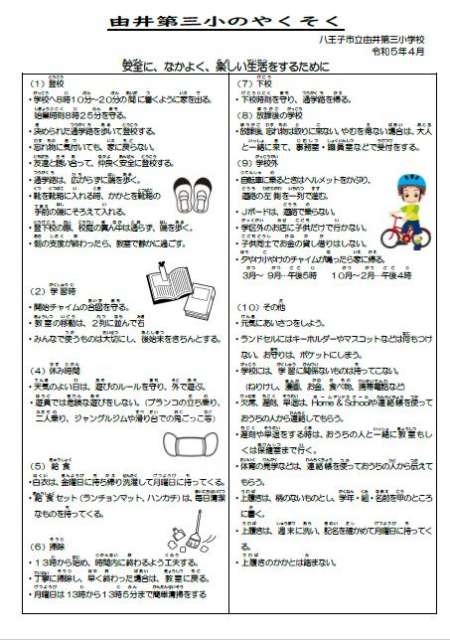 由井第三小のやくそく
八王子市立由井第三小学校
令和5年4月
安全に、なかよく、楽しい生活をするために
(1) 登校
・学校へ8時10分〜20分の間に着くように家を出る。
始業時刻8時25分を守る。
・決められた通学路を歩いて登校する。
・忘れ物に気付いても、家に戻らない。
・友達と誘い合って、仲良く安全に登校する。
・通学路は、広がらずに端を歩く。
・靴を靴箱に入れる時、かかとを靴箱の
手前の端にそろえて入れる。
・登下校の際、校庭の真ん中は通らず、端を歩く。
・朝の支度が終わったら、教室で静かに過ごす。
(2) 学習時
・開始チャイムの合図を守る。
・教室の移動は、2列に並んで右
・みんなで使うものは大切にし、後始末をきちんとする。
(4) 休み時間
・天気のよい日は、遊びのルールを守り、外で遊ぶ。
・遊具では危険な遊びをしない。(ブランコの立ち乗り、
二人乗り、ジャングルジムや滑り台での鬼ごっこ等)
(5) 給食
・白衣は、金曜日に持ち帰り洗濯して月曜日に持ってくる。
・給食セット(ランチョンマット、ハンカチ)は、毎日清潔
なものを持ってくる。
(6) 掃除
・13時から始め、時間内に終わるよう工夫する。
・丁寧に掃除し、早く終わった場合は、教室に戻る。
・月曜日は13時から13時5分まで簡単清掃をする
(7) 下校
・下校時刻を守り、通学路を帰る。
(8) 放課後の学校
・放課後、忘れ物は取りに来ない。やむを得ない場合は、大人
と一緒に来て、事務室・職員室などで受付をする。
(9) 学校外
・自転車に乗るときはヘルメットをかぶり、
道路の左側を一列で進む。
・Jボードは、道路で乗らない。
・学区外のお店に子供だけで行かない。
・子供同士でお金の貸し借りはしない。
・夕やけ小やけのチャイムが鳴ったら家に帰る。
3月〜9月…午後5時 10月〜2月…午後4時
(10) その他
・元気にあいさつをしよう。
・ランドセルにはキーホルダーやマスコットなどは何もつけ
ない。お守りは、ポケットにしまう。
・学校には、学習に関係ないものは持ってこない。
(ねりけし、漫画、お金、食べ物、携帯電話など)
・欠席、遅刻、早退は、Home&Schoolや連絡帳を使って
おうちの人から連絡してもらう。
・遅刻や早退をする時は、おうちの人と一緒に教室もし
くは保健室まで行く。
・体育の見学などは、連絡帳を使っておうちの人から伝えて
もらう。
・上履きは、柄のないものとし、学年・組・名前を甲のところ
に書く。
・上履きは、週末に洗い、記名を確かめて月曜日に持ってく
る。
・上履きのかかとは踏まない。